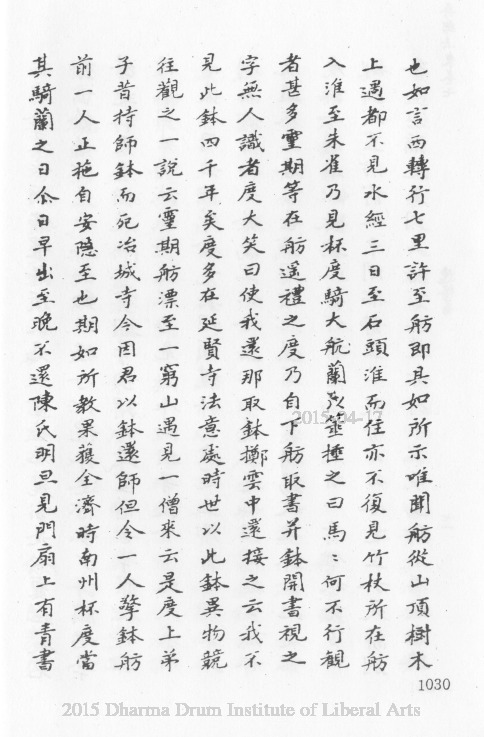 也如言西轉行七里許至舫即具如所示唯聞舫從山頂樹木
上過都不見水經三日至石頭淮而住亦不復見竹杖所在舫
入淮至朱雀乃見杯度騎大航蘭以箠捶之曰馬〻何不行觀
者甚多靈期等在舫遥禮之度乃自下舫取書并鉢開書視之
字無人識者度大笑曰使我還那取鉢擲雲中還接之云我不
見此鉢四千年矣度多在延賢寺法意處時世以此鉢異物競
往觀之一說云靈期舫漂至一窮山遇見一僧來云是度上弟
子昔持師鉢而死冶城寺今因君以鉢還師但令一人擎鉢舫
前一人正拖自安隱至也期如所教果獲全濟時南州杯度當
其騎蘭之日尒日早出至晚不還陳氏明旦見門扇上有青書
1030
2015-04-17
2015 Dharma Drum Institute of Liberal Arts